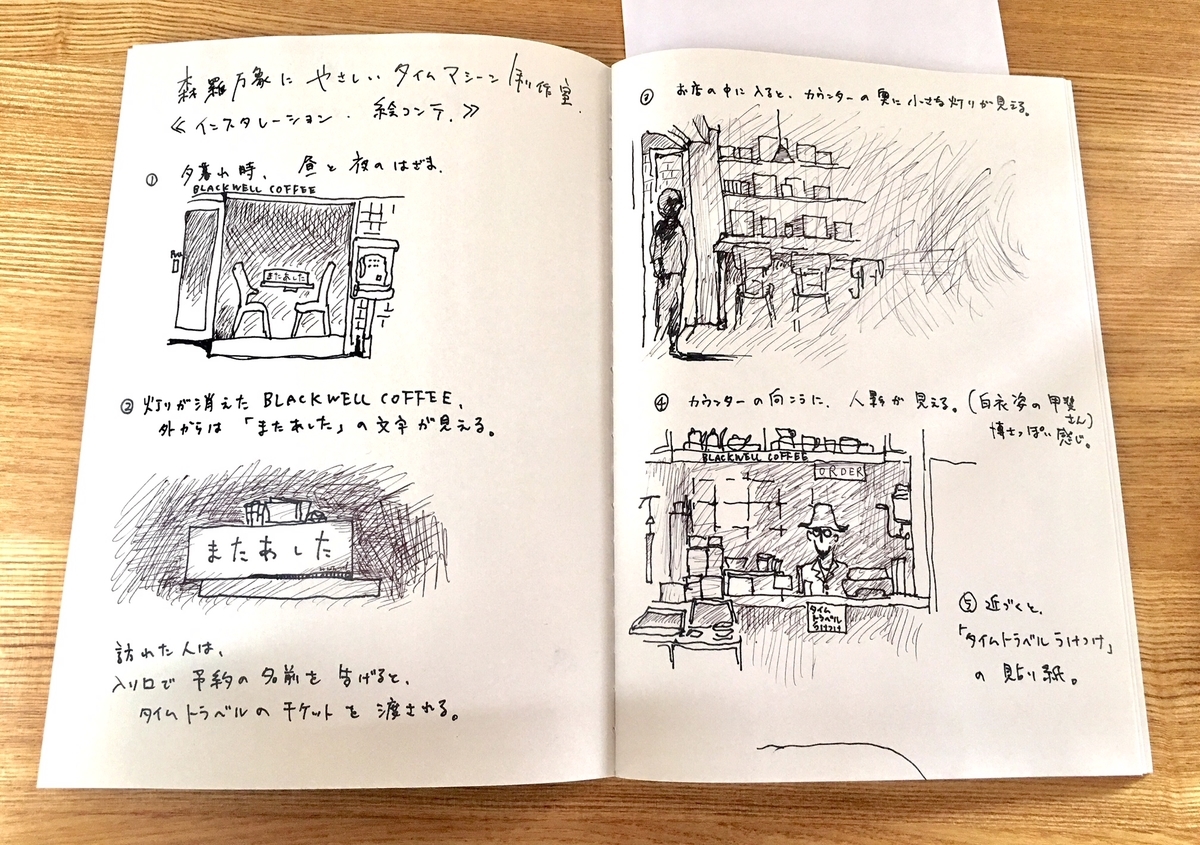 森羅万象に やさしい タイムマシーン 制作室.
≪インスタレーション. 絵コンテ.≫
① 夕暮れ時、 昼と夜のはざま.
BLACKWELL COFFEE
またあした
② 灯りが消えた BLACKWELL COFFEE、
外からは 「またあした」の文字が見える。
またあした
訪れた人は、
入り口で 予約の名前を告げると、
タイムトラベルの チケットを 渡される。
③ お店の中に入ると、カウンターの奥に小さな灯りが見える。
④ カウンターの向こうに、人影が見える。(白衣姿の甲斐さん)
博士っぽい感じ。
BLACKWELL COFFEE
ORDER
タイム
トラベル
うけつけ
⑤ 近づくと、
「タイムトラベルうけつけ」
の 貼り紙。